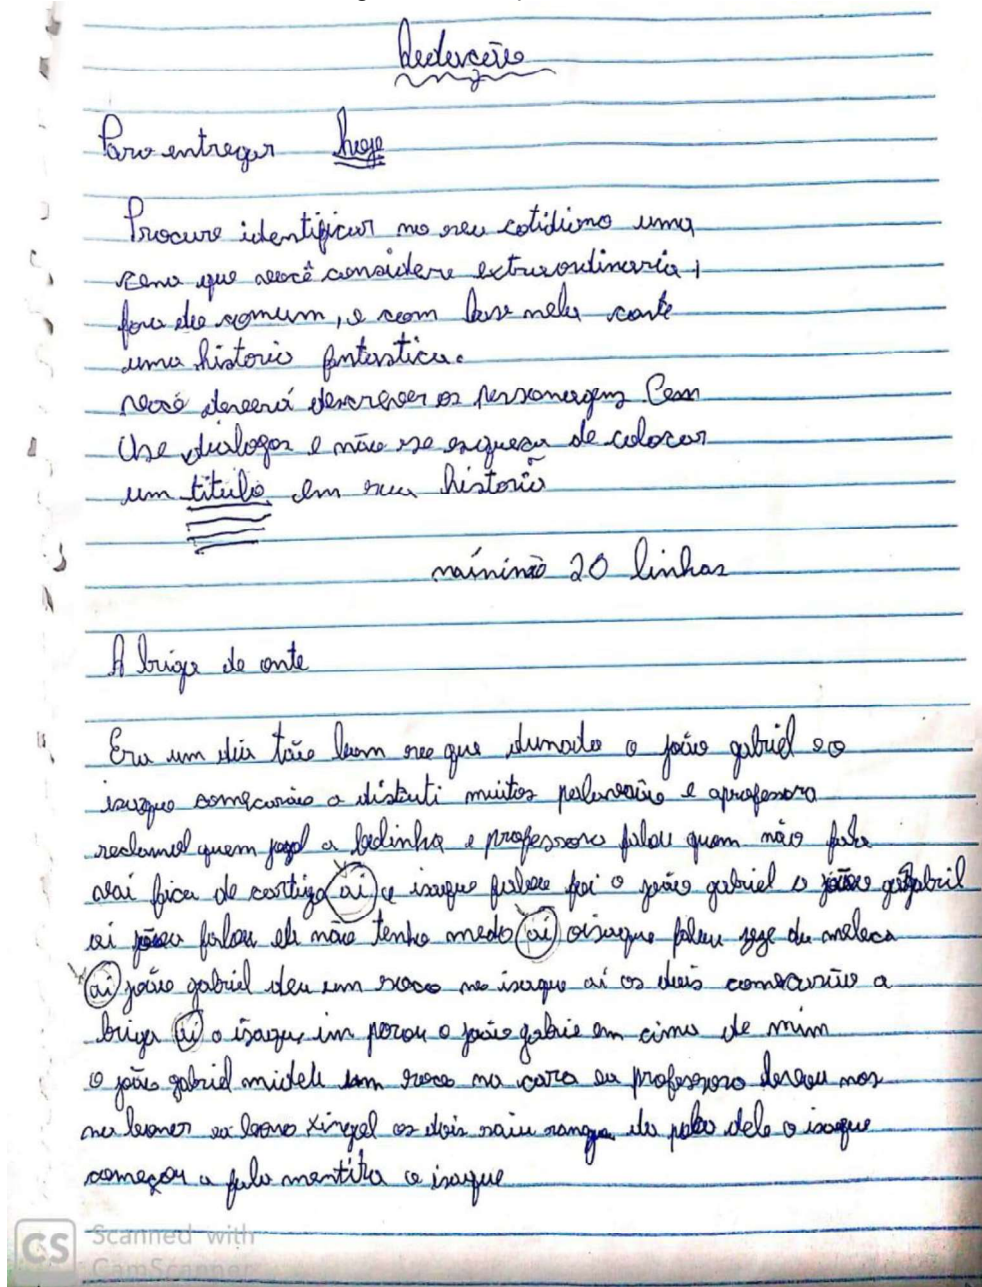 Redação
Para entregar hoje
Procure identificar no seu cotidiano uma
cena que você considere extraordinaria,
fora do comum, e com base nela conte
uma historia fantastica.
você deverá descrever os personagens Cem
Use dialogos e não se esqueça de colocar
um titulo em sua historia
mínimo 20 linhas
A briga de onte
Era um dia tão bom see que dunada o joão gabriel e o
isaque começarão a discuti muitos palavrão e aprofessora
reclamol quem jogol a bolinha e professora falou quem não fala
vai fica de castigo ai o isaque falou foi o joão gabriel o gabriel
ai falou ele não tenho medo ai oisaque falou de meleca
ai joão gabriel deu um soco no isaque ai os dois comesarão a
briga ai o isaque in porou o joão gabrie em cima de mim
o joão gabriel mideu um soco na cara ea professora levou nos
os dois saiu sangue do dele o isaque
começou a fala mentira o isaque
CS Scanned with
CamScanner